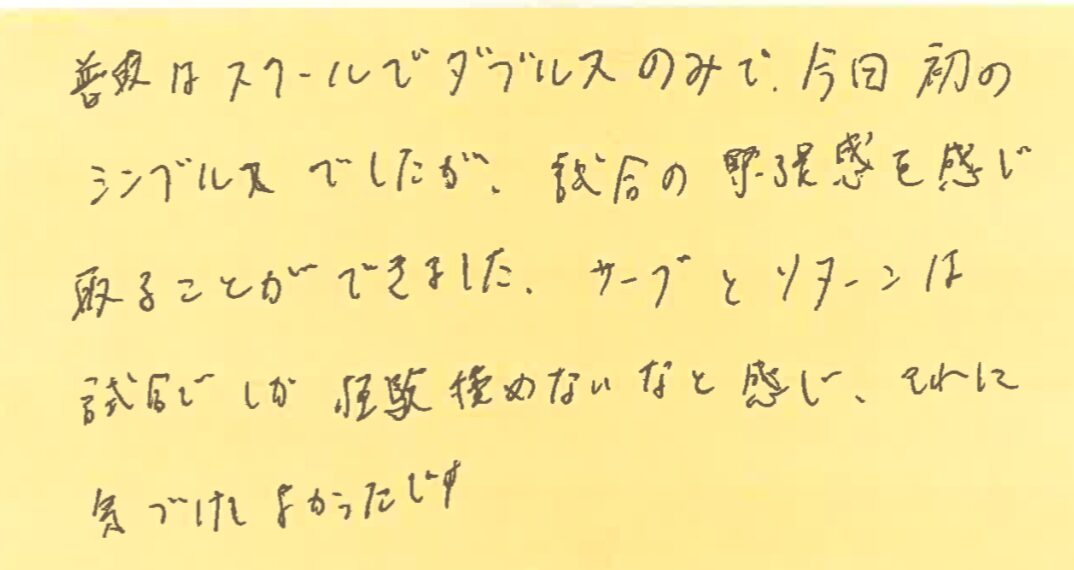 普段はスクールでダブルスのみで、今回初の
シングルスでしたが、試合の緊張感を感じ
取ることができました。サーブとリターンは
試合でしか経験積めないなと感じ、それに
気づけてよかったです